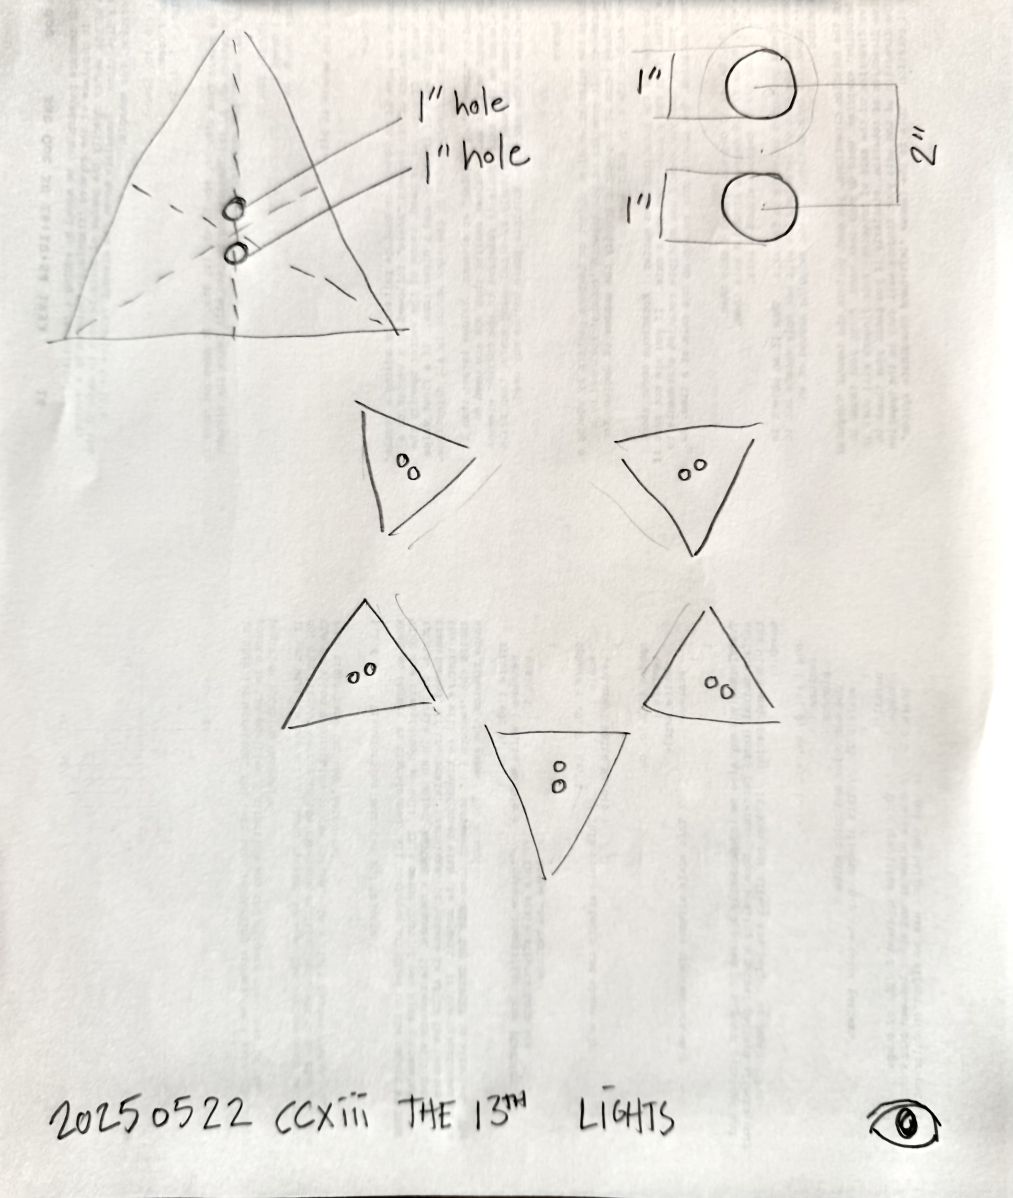 1" hole
1" hole
1"
1"
2"
20250522 CCXiii THE 13TH LiGHTS